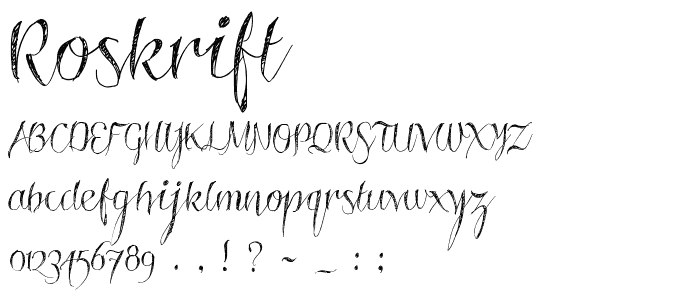 Roskrift
ABCDEFGHIJKLMNOPQRSTUVWXYZ
abcdefghijklmnopqrstuvwxyz
0123456789 . , ! ? ~ _ : ;